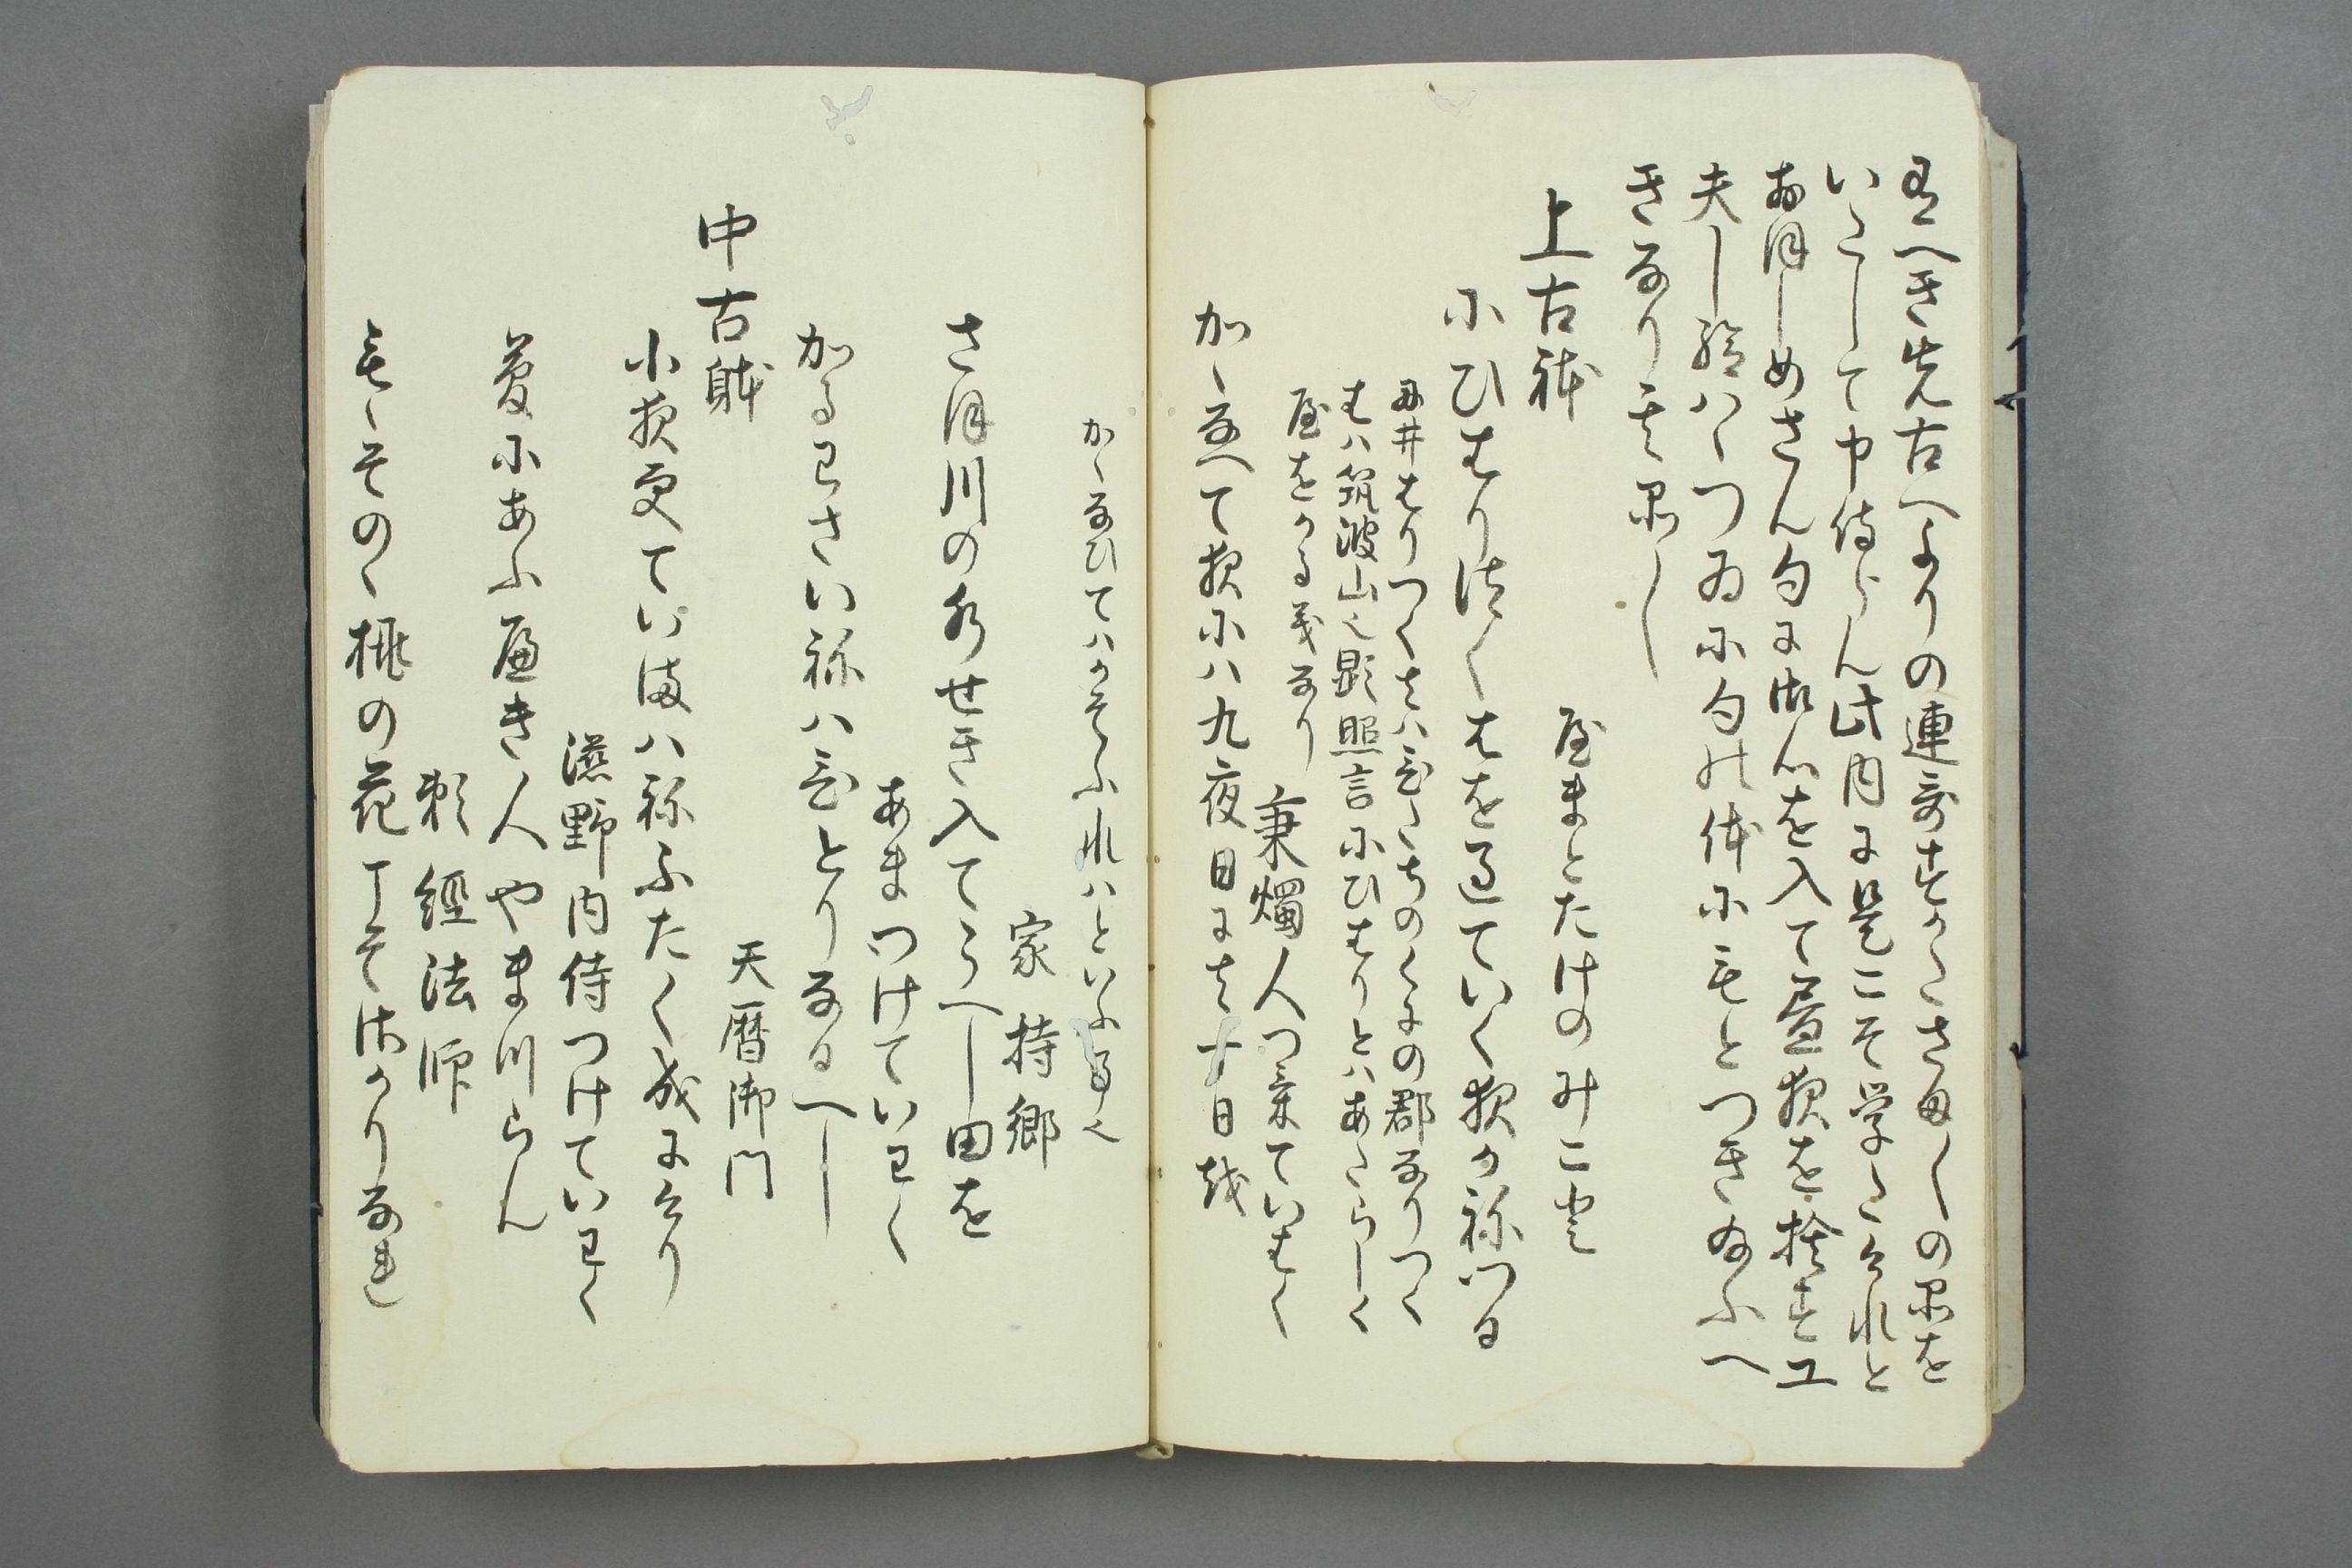 へき先古へよりの連哥すかたさま〱の品を
いたして申侍らん此内に是こそ学たけれと
おほしめさん句に御心を入て昼夜を捨す工
夫し給はゝつゐに句の体にもとつき給ふへ
きなり其品〱
上古躰
屋まとたけのみこと
にひはりつくはを過ていく夜かねつる
にひはりつくはひたちのくにの郡なりつく
はゝ筑波山也顕照言にひはりとはあたらしく
屋をつくる義なり
秉燭人つきていはく
かゝなへて夜には九夜日には十日を
かゝなひてはかそふれはといふ事也
家持郷
さほ川の水せき入てうへし田を
あまつけていはく
かるわさいねはひとりなるへし
中古躰
天暦御門
小夜更ていまはねふたく成にけり
滋野内侍つけていわく
夢にあふへき人やまつらん
頼経法師
もゝそのゝ桃の花こそさかりなれ